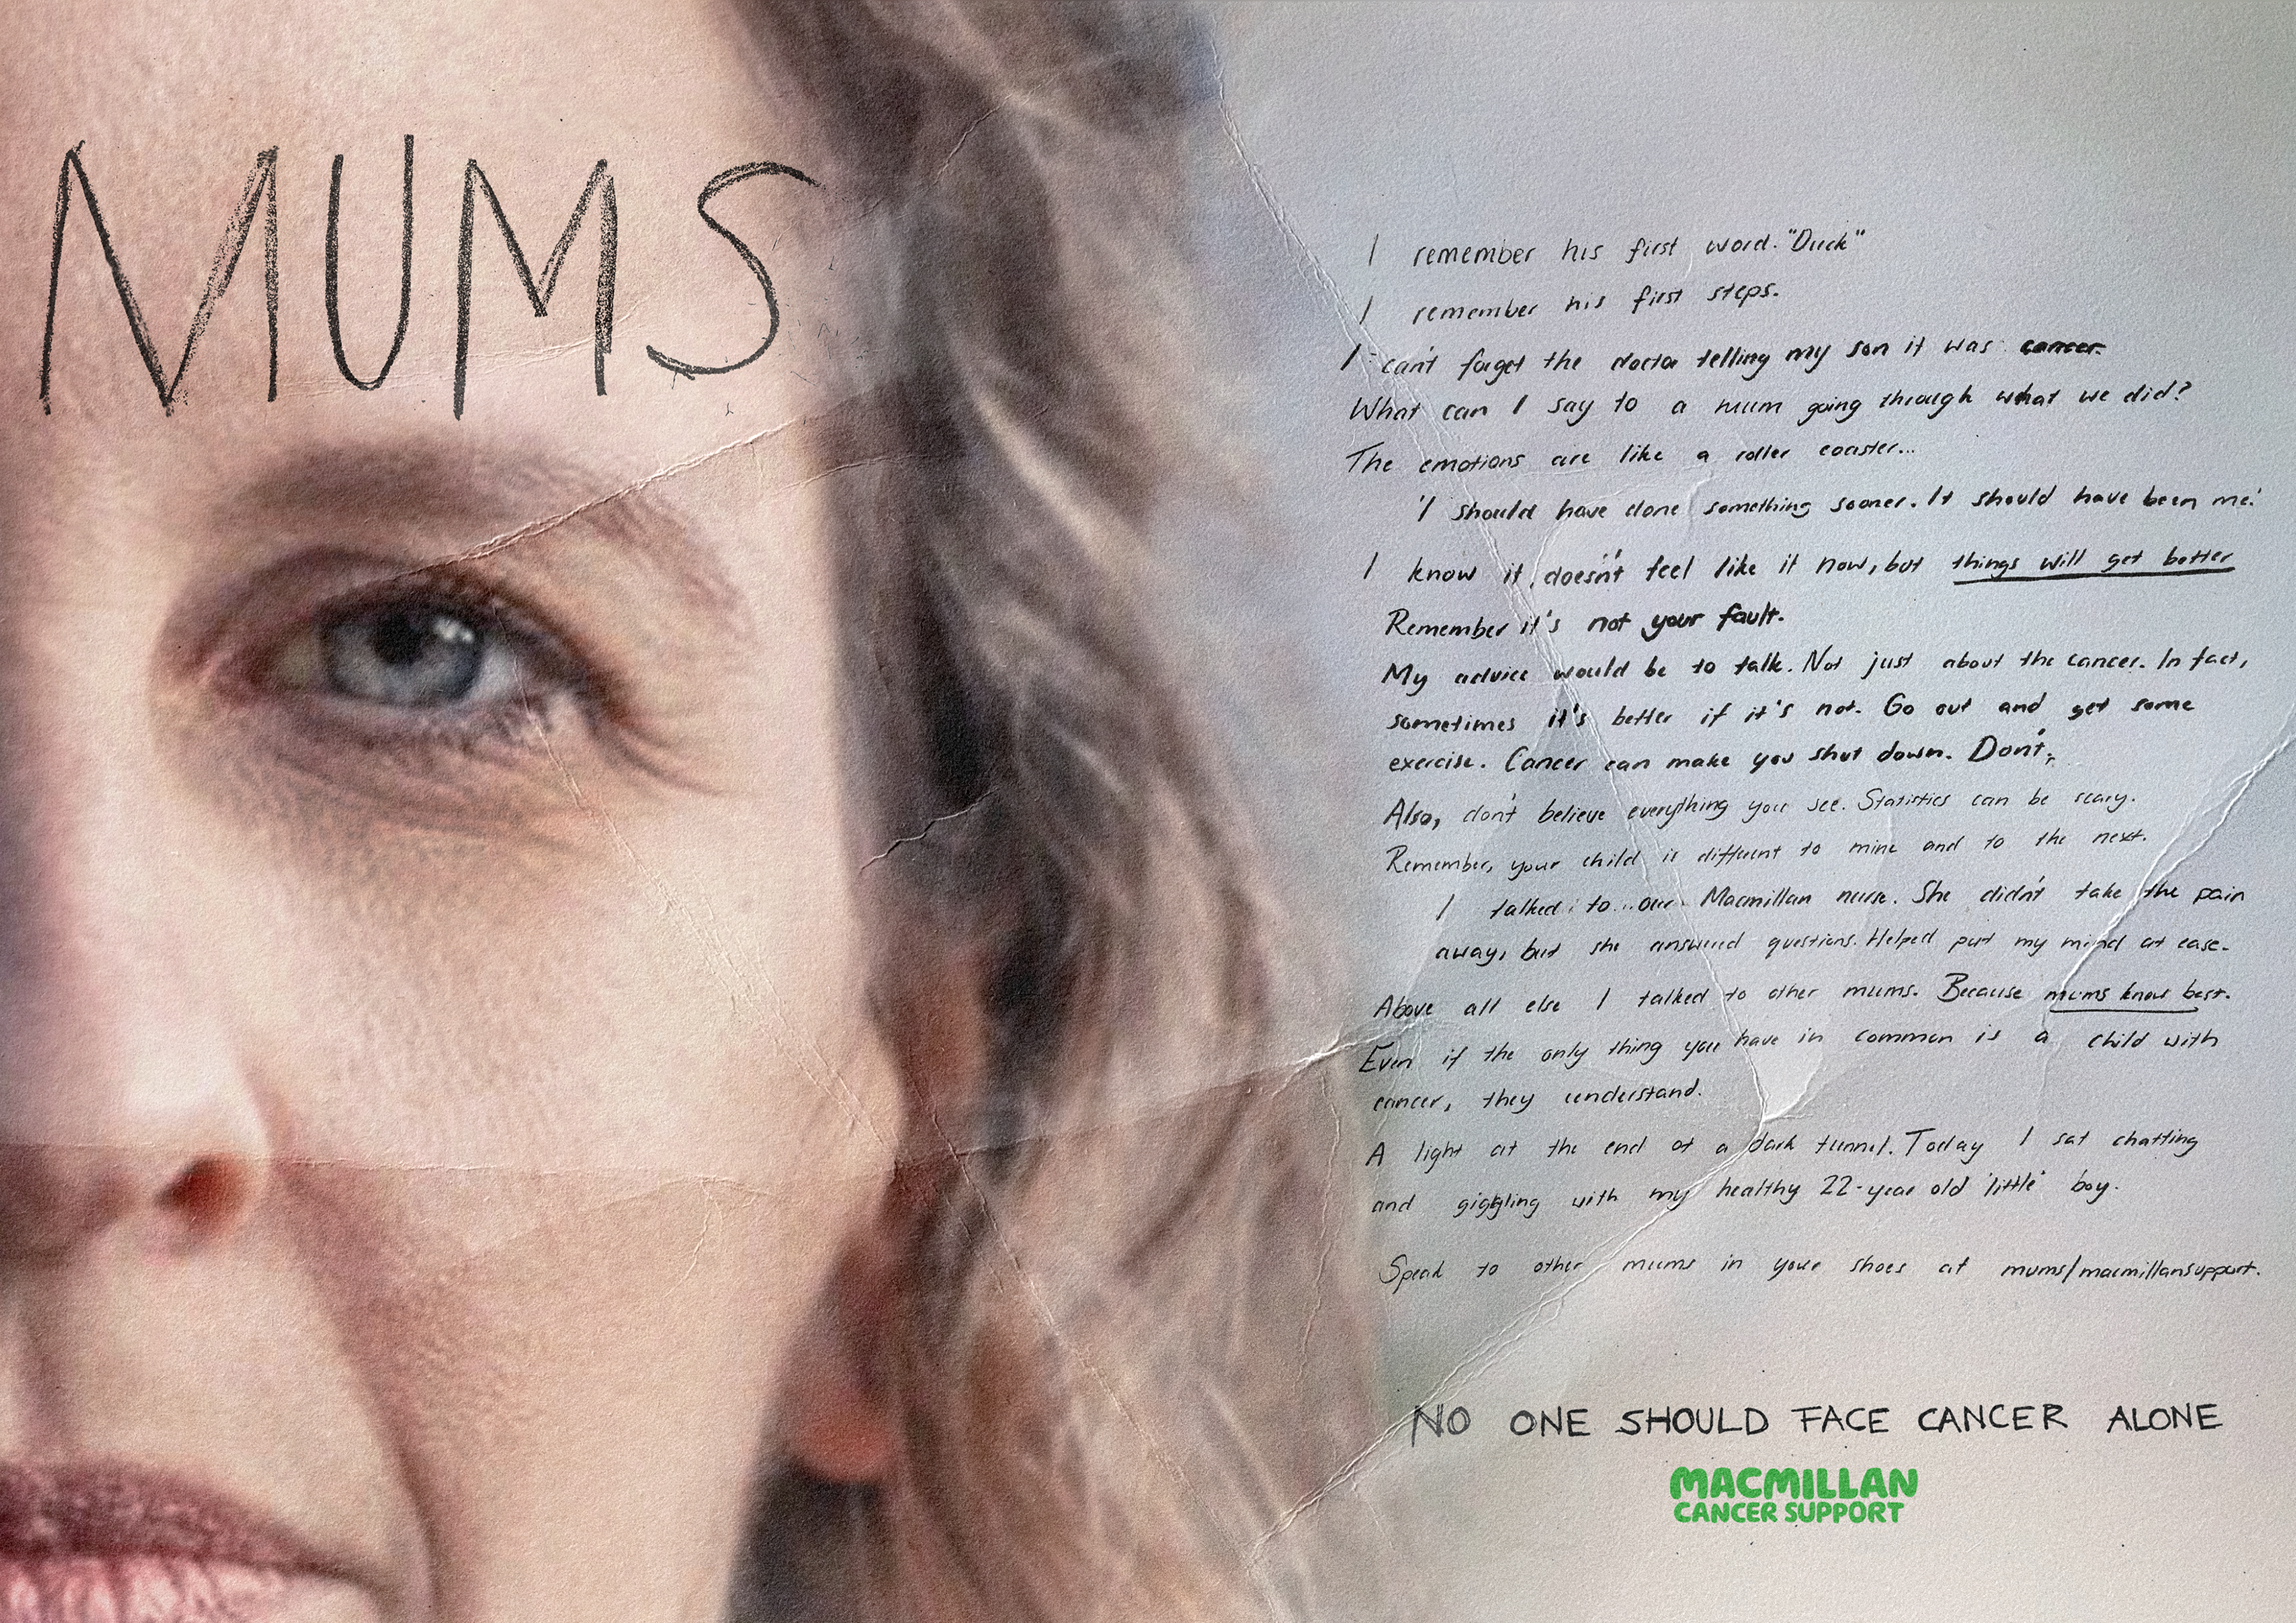 MUMS
I remember his first word. "Duck"
I remember his first steps.
I can't forget the doctor telling my son it was cancer.
What can I say to a mum going through what we did?
The emotions are like a roller coaster...
'I should have done something sooner. It should have been me.'
I know it doesn't feel like it now, but things will get better
Remember it's not your fault.
My advice would be to talk. Not just about the cancer. In fact,
sometimes it's better if it's not. Go out and get some
exercise. Cancer can make you shut down. Don't.
Also, don't believe everything you see. Statistics can be scary.
Remember, your child is different to mine and to the next.
I talked to our Macmillan nurse. She didn't take the pain
away, but she answered questions. Helped put my mind at ease.
Above all else I talked to other mums. Because mums know best.
Even if the only thing you have in common is a child with
cancer, they understand.
A light at the end of a dark tunnel. Today I sat chatting
and giggling with my healthy 22-year old 'little' boy.
Speak to other mums in your shoes at mums/macmillansupport.
NO ONE SHOULD FACE CANCER ALONE
MACMILLAN
CANCER SUPPORT